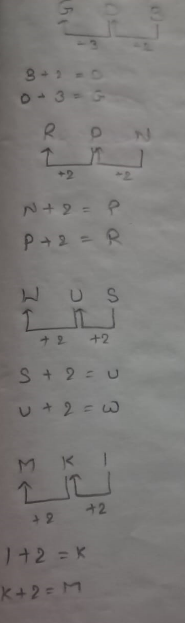 G D B
+3 +2
B+2 = D
D+3 = G
R P N
+2 +2
N+2 = P
P+2 = R
W U S
+2 +2
S+2 = U
U+2 = W
M K I
+2 +2
I+2 = K
K+2 = M